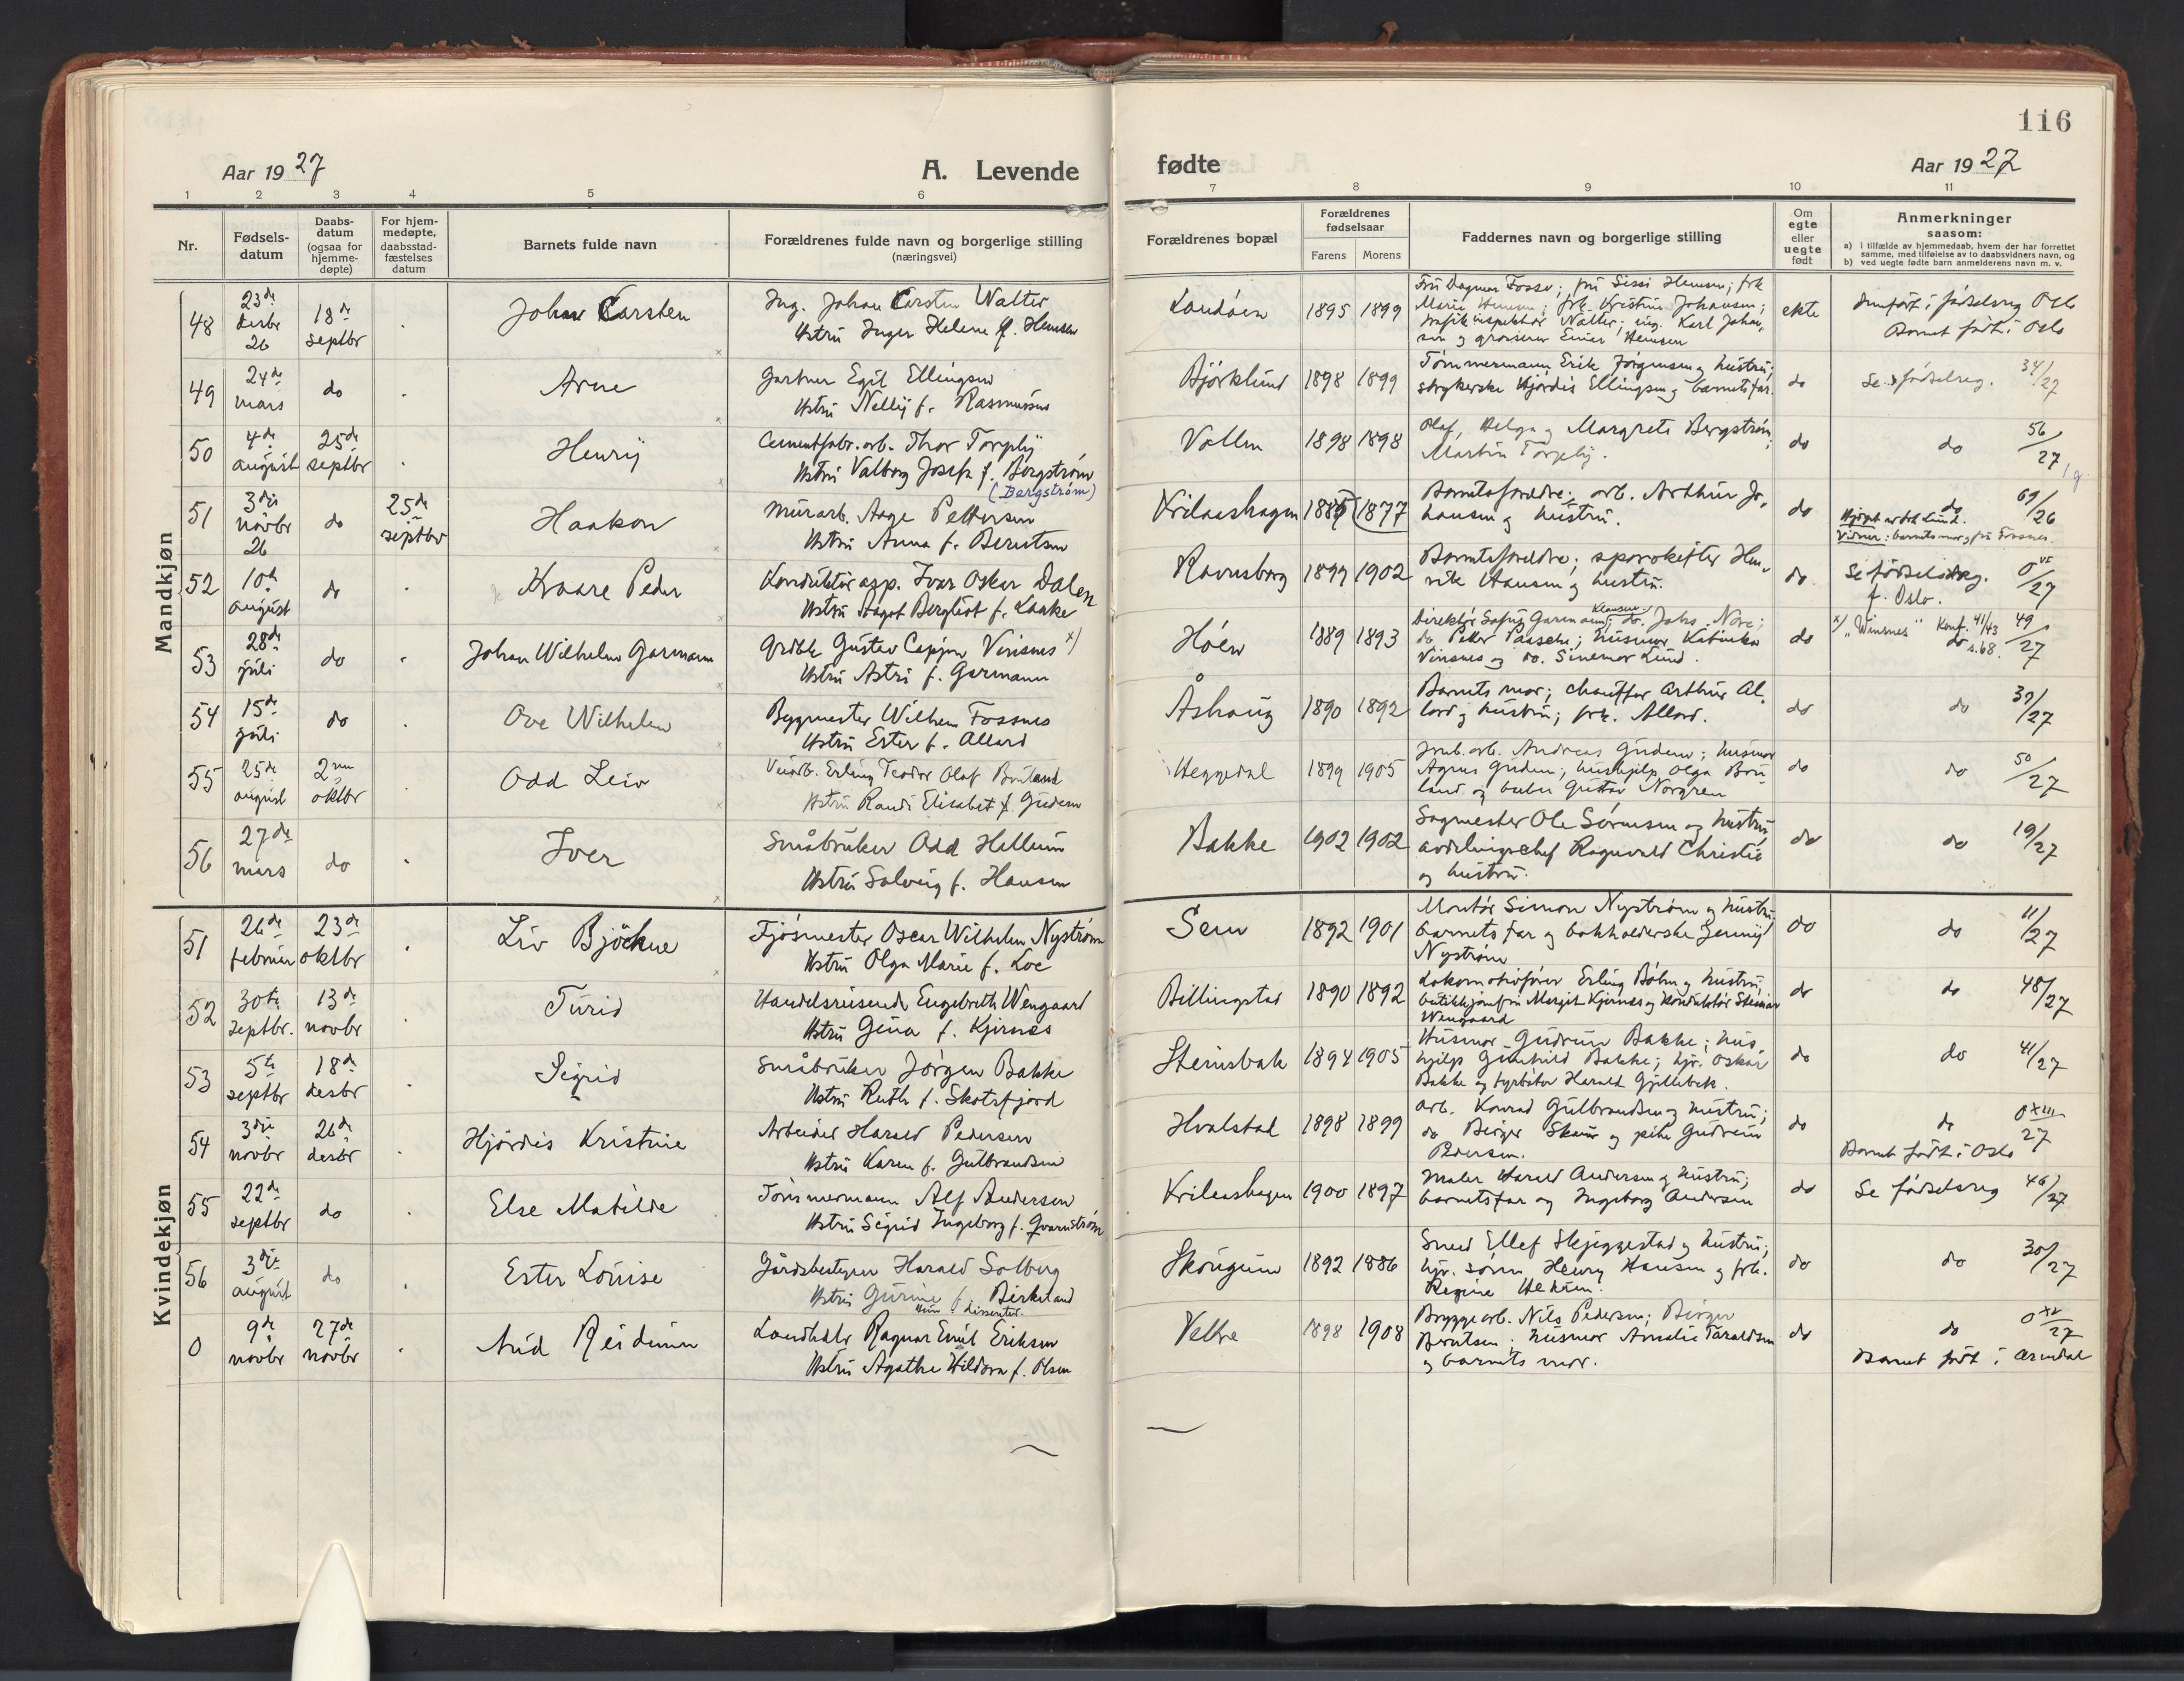 116
Aar 1927 A. Levende fødte Aar 1927
1 2 3 4 5 6 7 8 9 10 11
Nr. Fødsels-datum Daabs-datum (ogsaa for hjemme-døpte) For hjem-medøpte, daabsstad-fæstelses datum Barnets fulde navn Forældrenes fulde navn og borgerlige stilling (næringsvei) Forældrenes bopæl Forældrenes fødselsaar Farens Morens Faddernes navn og borgerlige stilling Om egte eller uegte født Anmerkninger saasom:
a) i tilfælde av hjemmedaab, hvem der har forrettet samme, med tilføielse av to daabsvidners navn, og
b) ved uegte fødte barn anmelderens navn m. v.
Mandkjøn
48 23de desbr 26 18de septbr Johan Carsten Ing. Johan Carsten Walter
Hstru Inger Helene f. Hemsen
1895 1899 Fru Dagmar Fosse; fru Sissi Hemsen; frk
Marie Hemsen; frk. Kristine Johansen;
trafikinspektør Walter; ing. Karl Johan-
sen og grosserer Einar Hemsen
ekte Innført i fødselsreg Oslo
Barnet født i Oslo
49 24de mars do Arne Gartner Egil Ellingsen
Hstru Nelly f. Rasmussen
Bjørklund 1898 1899 Tømmermann Erik Jørgensen og hustru;
strykerske Hjørdis Ellingsen og barnets far.
do Se fødselsreg. 34/27
50 4de august 25de septbr Henry Cementfabr.arb. Thor Torpby
Hstru Valborg Josefa f. Bergstrøm
(Bergstrøm)
Vollen 1898 1898 Olaf, Helga og Margrete Bergstrøm;
Martin Torpby.
do do 56/27
51 3die novbr 26 do 25de septbr Haakon Murarb. Aage Pettersen
Hstru Anna f. Berntsen
1877 Barnets foreldre; arb. Arthur Jo-
hansen og hustru.
do do 69/26
Hjdøpt av dr Lund.
Vidner: barnets mor og fru Fossnes.
52 10de august do Kaare Peder Konduktør asp. Ivar Oskar Dalen
Hstru Aagot Bergliot f. Laake
Ravnsborg 1899 1902 Barnets foreldre; sporskifter Hen-
rik Hansen og hustru.
do Se fødselsreg. 0 VI/27
f. Oslo.
53 28de juli do Johan Wilhelm Garmann Gustav Cappen Vinsnes x)
Hstru Astri f. Garmann
Høen 1889 1893 Direktør Sofus Garmann; do. Johs. Nore;
do Peter Paasche; husmor Katinka
Vinsnes og do. Lund.
do x) "Winsnes" Konf. 41/43 49/27
do s. 68.
54 15de juli do Ove Wilhelm Bygmester Wilhelm Fossnes
Hstru Ester f. Allard
Åshaug 1890 1892 Barnets mor; chauffør Arthur Al-
lard og hustru; frk. Allard.
do do 39/27
55 25de august 2nen oktbr Odd Leiv Veiarb. Erling Teodor Olaf Bruland
Hstru Randi Elisabet f. Gudem
Heggedal 1899 1905 Jernb.arb. Andreas Gudem; husmor
Agnes Gudem; hushjelp Olga Bru-
land og Gustav Norgren
do do 50/27
56 27de mars do Iver Småbruker Odd Hellum
Hstru Solveig f. Hansen
Bakke 1902 1902 Sagmester Ole Sørensen og hustru;
avdelingschef Ragnvald Christie
og hustru.
do do 19/27
Kvindekjøn
51 26de februar 23de oktbr Liv Fjøsmester Oscar Wilhelm Nystrøm
Hstru Olga Marie f. Loe
Sem 1892 1901 Montør Simon Nystrøm og hustru;
barnets far og bokholderske Jenny
Nystrøm
do do 11/27
52 30te septbr. 13de novbr Turid Handelsreisende Engebreth Wengaard
Hstru Gina f. Kjernes
Billingstad 1890 1892 Lokomotivfører Erling Bøhn og hustru;
butikkjomfru Margit Kjernes og konduktør Steinar
Wengaard
do do 48/27
53 5te septbr 18de desbr Sigrid Småbruker Jørgen Bakke
Hstru Ruth f. Skotsfjord
Stensbak 1894 1905 Husmor Gudrun Bakke; hus-
hjelp Gunhild Bakke; kjr. Oskar
Bakke og fyrbøter Harald Gjellebek.
do do 41/27
54 3die novbr 26de desbr Hjørdis Kristine Arbeider Harald Pedersen
Hstru Karen f. Gulbrandsen
Hvalstad 1898 1899 Arb. Konrad Gulbrandsen og hustru;
do Birger Skaur og pike Gudrun
Pedersen.
do do 0 XIII/27
Barnet født i Oslo
55 22de septbr do Else Matilde Tømmermann Alf Andersen
Hstru Sigrid Ingeborg f. Qvarnstrøm
Krileashagen 1900 1897 Maler Harald Andersen og hustru;
barnets far og Ingeborg Andersen
do Se fødselsreg 46/27
56 3die august do Ester Louise Gårdsbestyrer Harald Solberg
Hstru Gurine f. Birkeland
Hun dissenter.
Skougum 1892 1886 Smed Ellef Skjeggestad og hustru;
kjr. sønn Henry Hansen og frk.
Regine Hekum.
do do 30/27
0 9de novbr 27de novbr Aud Reidunn Ragnar Emil Eriksen
Hstru Agathe Hildora f. Olsen
Vettre 1898 1908 Bryggearb. Nils Pedersen; Birger
Berntsen; husmor Amalie Taraldsen
og barnets mor.
do do 0 XV/27
Barnet født i Arendal